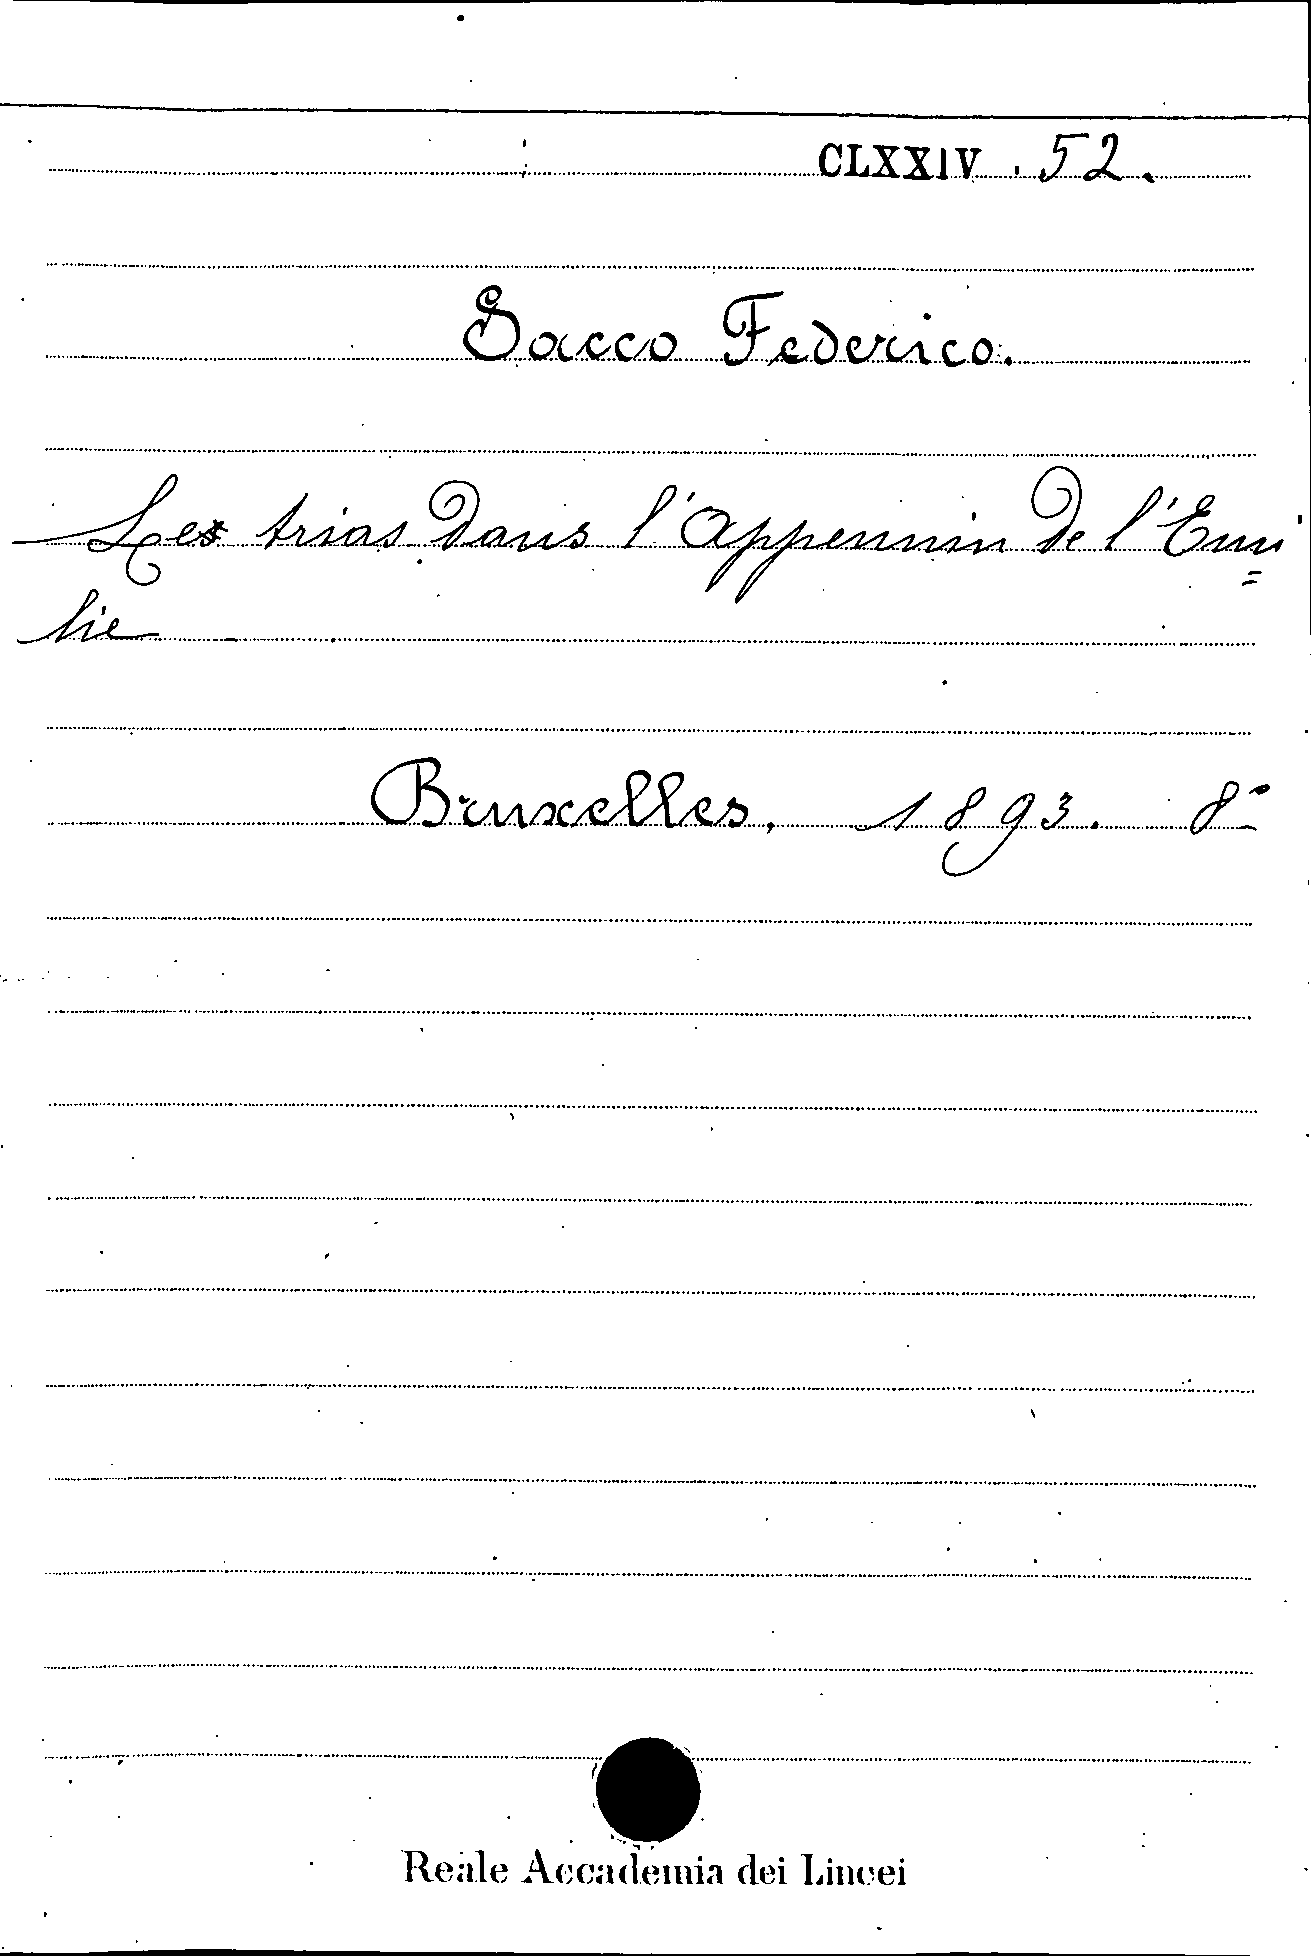 CLXXIV . 52.
Sacco Federico.
Les trias dans l'Appennin de l'Emi=
lie
Bruxelles, 1893. 8°
Reale Accademia dei Lincei